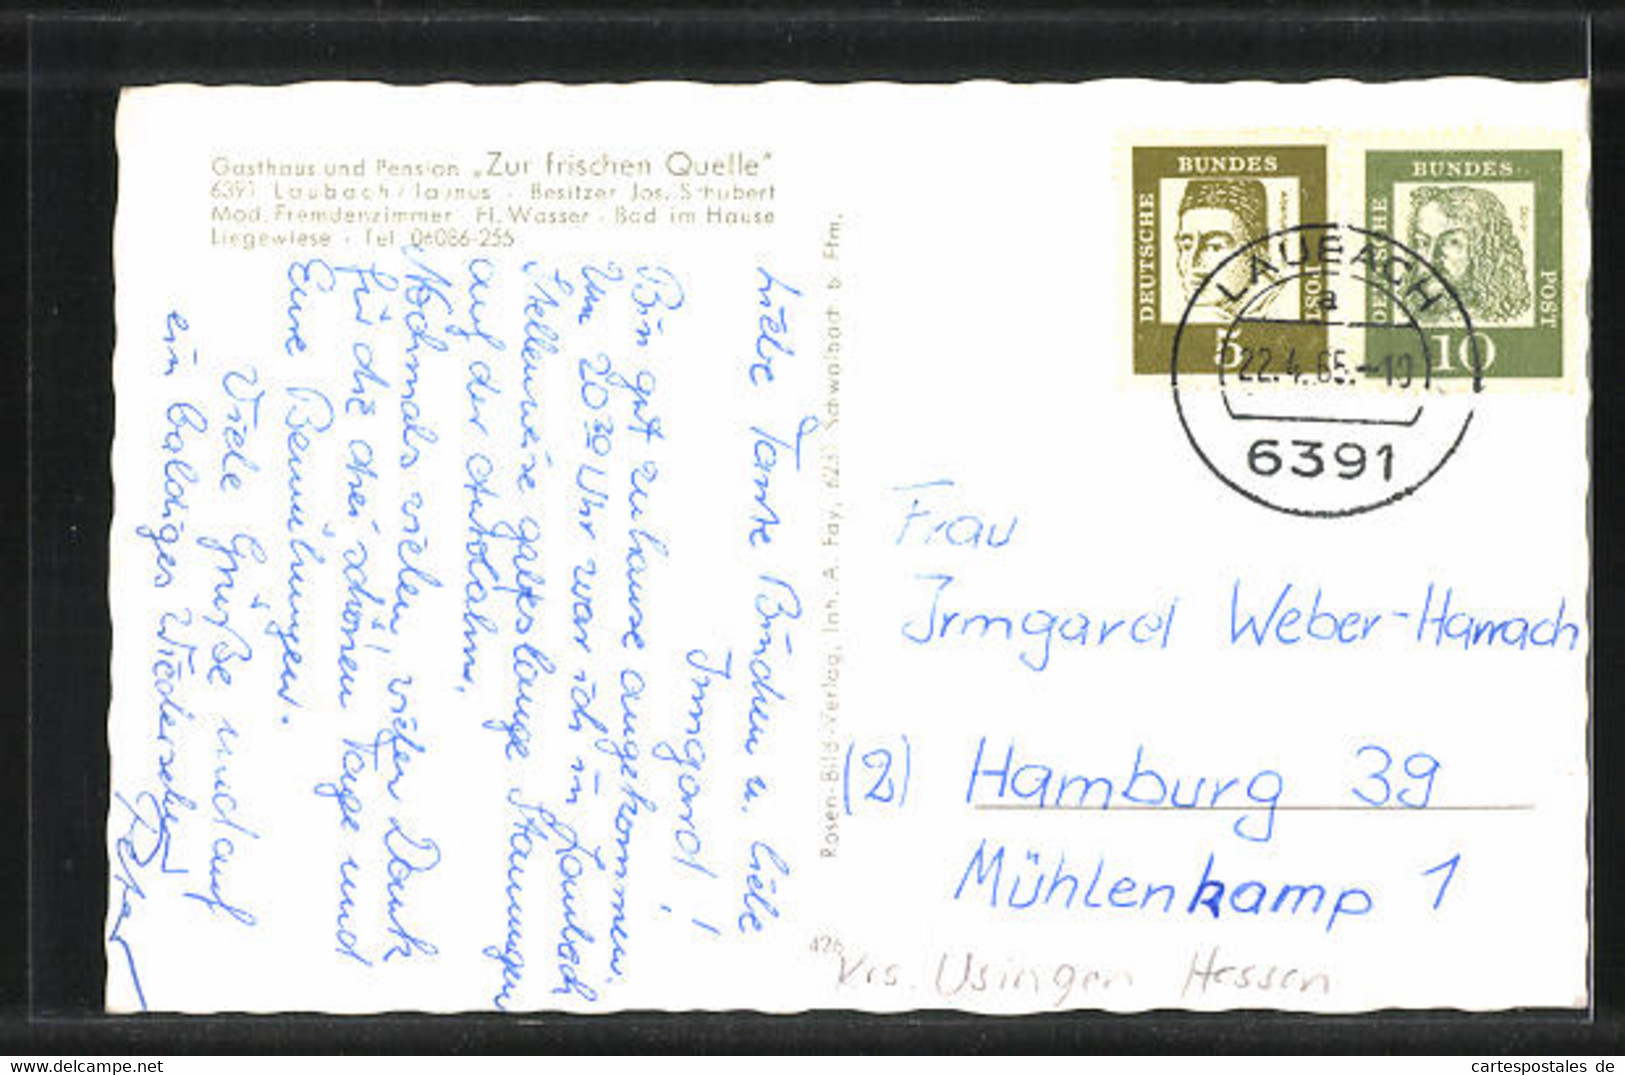 Gasthaus und Pension „Zur frischen Quelle"
6391 Laubach/Taunus · Besitzer Jos. Schubert
Mod. Fremdenzimmer · Fl. Wasser · Bad im Hause
Liegewiese · Tel. 06086-255
Liebe Tante Bündchen u. liebe
Irmgard!
Bin gut zuhause angekommen.
Um 20³⁰ Uhr war ich in Laubach
Stellenweise gab es lange Stauungen
auf der Autobahn.
Nochmals vielen, vielen Dank
für die drei schönen Tage und
Eure Bemühungen.
Viele Grüße und auf
ein baldiges Wiedersehen
Peter
Rosen-Bild-Verlag, Inh. A. Fay, 6231 Schwalbach b. Ffm.
426
DEUTSCHE
BUNDES
POST
5
DEUTSCHE
BUNDES
POST
10
LAUBACH
a
22.4.65.-10
6391
Frau
Irmgard Weber-Harrach
(2) Hamburg 39
Mühlenkamp 1
Krs. Usingen Hessen
www.delcampe.net
cartespostales de